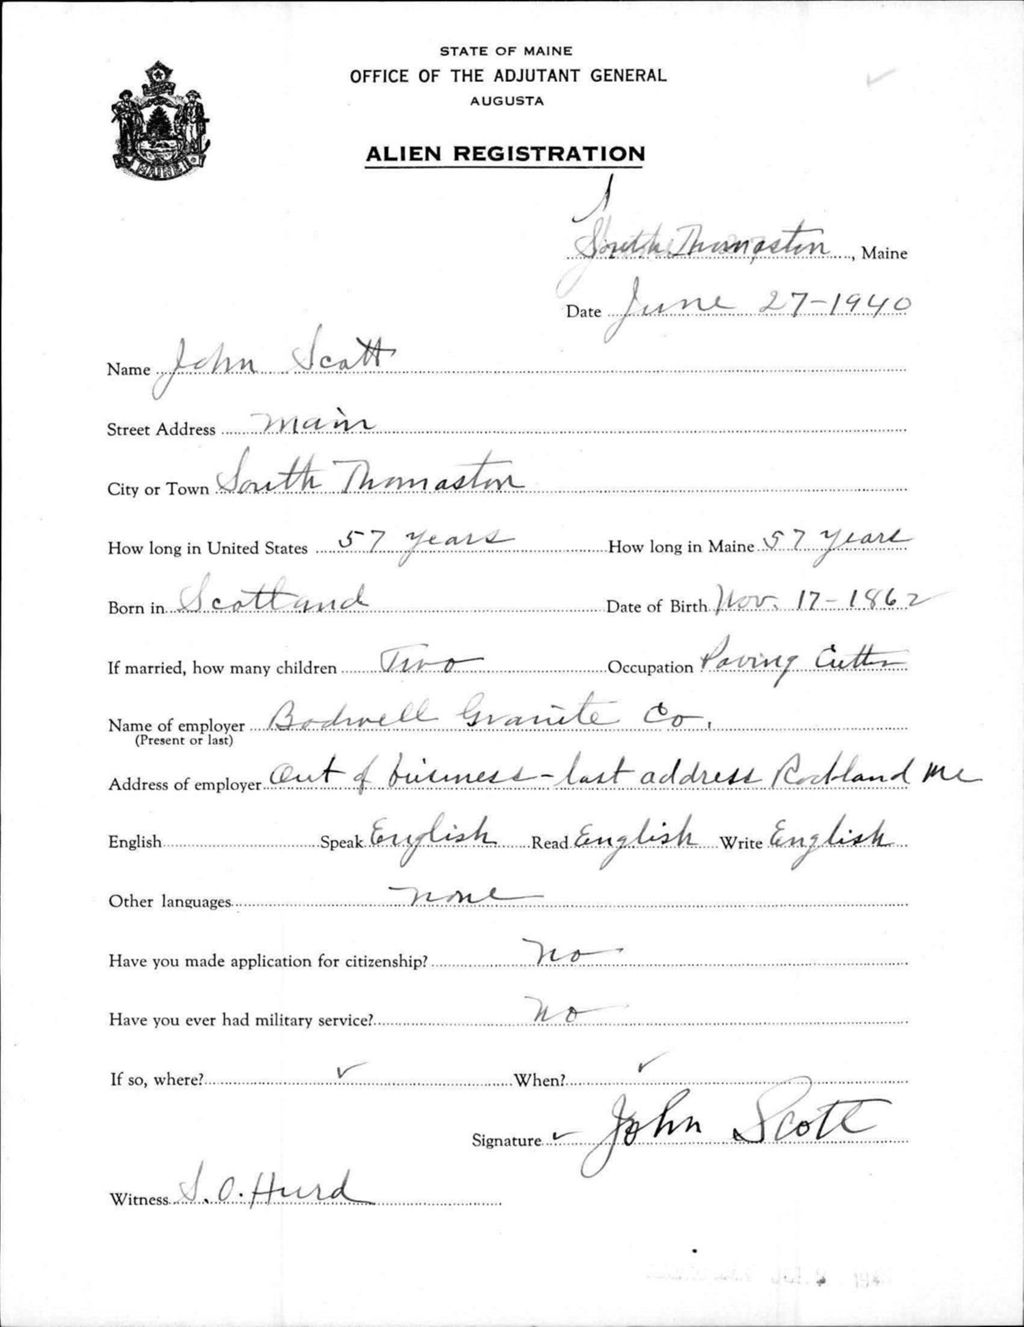 STATE OF MAINE
OFFICE OF THE ADJUTANT GENERAL
AUGUSTA
ALIEN REGISTRATION
MAINE
South Thomaston, Maine
Date June 27-1940
Name John Scott
Street Address Main
City or Town South Thomaston
How long in United States 57 years How long in Maine 57 years
Born in Scotland Date of Birth Nov. 17-1862
If married, how many children Two Occupation Paving Cutter
Name of employer Bodwell Granite Co.
(Present or last)
Address of employer Out of business - last address Rockland Me
English Speak English Read English Write English
Other languages none
Have you made application for citizenship? No
Have you ever had military service? No
If so, where? ✓ When? ✓
Signature ✓ John Scott
Witness S. O. Hurd